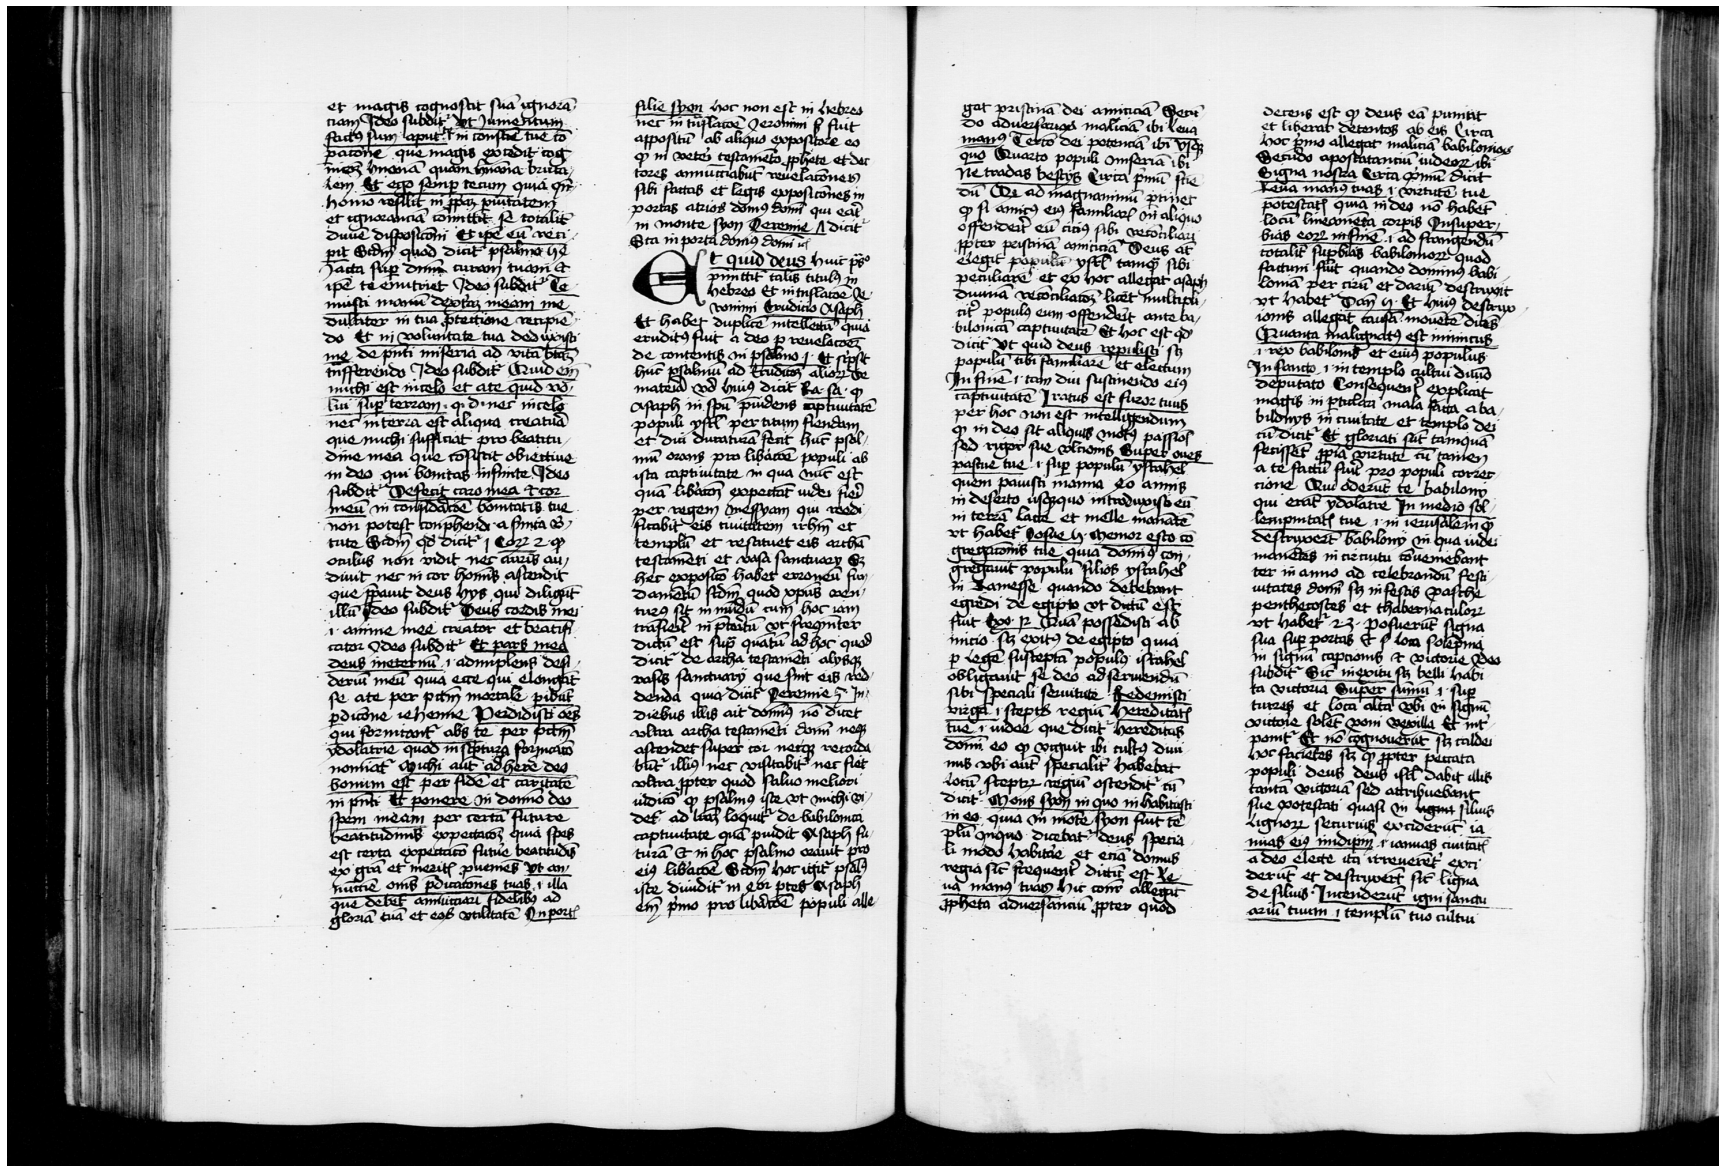 et magis cognoscit suā ignorā
ciam Ideo subdit̄ Vt Jumentum
factus sum aput t̄ in conscīē tue cō
patone que magis excedit cog
humana bruta
lem Et ego semp̄ tecum quia q̄n
homo resilit in p̄p̄m
et ignoranciā cōmittit se totalit̄
diuīe disposicōni Et ip̄e eū reci
pit Scdm̄ quod dicit psalmo
Iacta sup̄ dn̄m curam tuam et
ip̄e te enutriet Ideo subdit̄ Te
nuisti manū dext̄am meam me
ducit̄ in tua p̄tectione recipiē
do Et in voluntate tua deduxisti
me de p̄nti miseria ad vitā btām
trāsferendo Ideo subdit̄ Quid em̄
michi est in celo et a te quid vo
lui sup̄ terram q. d. nec in celo
nec in terra est aliqua creatura
que michi sufficiat pro beatitu
dine mea que cōsistit obiective
in deo qui bonitas infinite Ideo
subdit̄ Defecit caro mea et cor
meū in cōsidacōē bonitatis tue
non potest cōnphendi a finita v̄
tute Scdm̄ qd̄ dicit̄ 1 Cor̄ 2 q
oculus non vidit nec auris au
diuit nec in cor homīs ascendit
que p̄pauit deus hys qui diligūt
illū Ideo subdit̄ Deus cordis mei
i anime mee creator et beatifi
cator Ideo subdit̄ Et pars mea
deus ineternū i adimplens desi
deriū meū quia ecce qui elongāt
se a te per pctm̄ mortale pibūt
p̄dicōne iehenne Perdidisti oēs
qui fornicant̄ abs te per pctm̄
ydolatrie quod in sc̄ptura fornicatō
nomiāt̄ Michi aut̄ adherē deo
bonum est per fidē et caritatē
in p̄nti Et ponere in domino deo
spem meam per certā future
beatitudinis expectacōē quia spes
est certa expectacō future beatitudīs
ex grā et merit̄ p̄uenīes Vt an
nuncīē om̄s p̄dicacōnes tuas i illa
que debēt annuciari fidelibus ad
gloriā tuā et eor̄ vtilitatē In port̄
filie syon hoc non est in hebreo
nec in trāslacōē Ieronimi s̄ fuit
appositū ab aliquo expositore eo
q in vet̄i testamēto p̄phete et doc
tores annūciabāt reuelacōnes
sibi factas et legis exposicōnes in
portas atrios domꝰ domī qui erāt
in monte syon Ieremie dicit̄
Sta in porta domus domi
Vt quid deus huic ps̄o
p̄mittit̄ talis titulus in
hebreo Et in trāslacōē Ie
ronimi Erudicio Asaph
Et habet duplicē intellectū quia
eruditus fuit a deo p reuelacōē
de contentis in psalmo i Et scr̄psit
huc psalmū ad erudicōē alior̄ De
materia vō huius dicit Ra. sa. q
Asaph in sp̄u p̄uidens captiuitatē
populi ysrl̄ per titum fiendam
et diu duraturā fecit huc psal
mū orans pro libacōē populi ab
ista captiuitate in qua nūc est
quā libacōē expectāt iudei fieri
per regem messyam qui reedi
ficabit̄ eis ciuitatem irh̄m et
templū et restituet eis archā
testamēti et vasa sanctuary Sz
hec exposicō habet erroneū fun
damētū scdm̄ quod xp̄us ven
turus sit in mūdū cum hoc iam
trāsierit in p̄teritū vt frequīter
dictū est sup̄ quātū ad hoc quod
dicit̄ de archa testamēti alysqz
vasis sanctuary que sint eis red
denda quia dicit̄ Ieremie 3 In
diebus illis ait domīus nō dicet
vltra archa testamēti domī neqz
ascendet super cor neqz recorda
būt̄ illius nec visitabit̄ nec fiet
vltra p̄pter quod saluo meliori
iudico q psalmus iste vt michi vi
det̄ ad lrām loquit̄ de babilonica
captiuitate quā p̄uidit Asaph fu
turā Et in hoc psalmo orauit pro
eiꝰ libacōē Scdm̄ hoc igit̄ psalmꝰ
iste diuidit̄ in ptes Asaph
em̄ p̄mo pro libacōē populi alle
gat pristinā dei amiciciā Secū
do aduersarior̄ maliciā ibi Leua
manus Tercō dei potenciā ibi Vsqz
quo Quarto populi miseria ibi
Ne tradas bestys Circa p̄mū scie
dū q ad magnanimū p̄tinet
q si amicus eius familiar̄ in aliquo
offenderit eū ciciꝰ sibi recōciliari
p̄pter pristinā amiciciā Deus at̄
elegit populū ysrl̄ tamqz̄ sibi
peculiarē et ex hoc allegat asaph
diuinā recōciliacōē licet multipli
cit̄ populꝰ eum offenderit ante ba
bilonicā captiuitatē Et hoc est qd̄
dicit Vt quid deus repulisti sz
populū tibi familiarē et electum
In finē i tam diu sustinendo eiꝰ
captiuitatē Iratus est furor tuus
per hoc non est intelligendum
q in deo sit aliquis motꝰ passiōis
sed rigor sue vlcionis Super oues
pascue tue i sup̄ populū ysrahel
quem pauisti manna 40 annis
in deserto vsqzquo introduxisti eū
in terrā lacte et melle manātē
vt habet̄ Iosue Memor esto cō
gregacōnis tue quia domīus con
gregauit populū filios ysrahel
in Ramesse quando debebant
egredi de egipto vt dictū est
fuit Exo 12 Quā possedisti ab
inicio sz exitus de egipto quia
p legē susceptā populꝰ israhel
obligauit se deo ad seruiendū
sibi speciali seruitute Redemisti
virgā i sceptrū regiū hereditat̄
tue i iudee que dicit̄ hereditas
domī eo q viguit ibi cultus diui
nus vbi aut̄ specialit̄ habebat
locū sceptr̄ regiū ostendit̄ cū
dicit̄ Mons syon in quo inhabitasti
in eo quia in mōte syon fuit tē
plū inquo dicebat̄ deus specia
li modo habitare et eciā domus
regia sic̄ frequent̄ dictū est Le
ua manꝰ tuas hic cōnt̄ allegat
p̄pheta aduersanciū p̄pter quod
decens est q deus eā puniat
et liberat detentos ab eis Circa
hoc p̄mo allegat maliciā babilonior̄
Secūdo apostatanciū iudeor̄ ibi
Signa nostra Circa p̄mū dicit
Leua manus tuas i virtutē tue
potestat̄ quia in deo nō habet̄
locū lineamēta corpis Insuper
bias eorū in finē i ad frangendū
totalit̄ supbias babilonior̄ quod
factum fuit quando dominus babi
loniā per cirū et dariū destruxit
vt habet̄ Dan h Et huiꝰ destruc
ionis allegat causā mouētē dicēs
Quanta malignatus est inimicus
i rex babilonīs et eiꝰ populus
In sancto i in templo cultui diuīo
deputato Consequent̄ explicat
magis in p̄ticulari mala facta a ba
bilonys in ciuitate et templo dei
cū dicit̄ Et gloriati sūt tamquā
fecissēt p̄pia virtute cū tamen
a te factū fuit pro populi correc
cione Qui oderūt te babilony
qui erāt ydolatre In medio sol
lempnitat̄ tue i in ierusalem q
destruxerūt babilony in qua iudei
manētes in circuitu cōueniebant
ter in anno ad celebrandū festi
uitates domī sz in festis pasche
penthecostes et thabernaculor̄
vt habet̄ 23 Posuerūt signa
sua sup̄ portas et s̄ loca solēpnia
in signū capcionis et victorie Ideo
subdit̄ Sic̄ in exitu sz belli habi
ta victoria Super summū i sup̄
turres et loca alta vbi in signū
victorie solēt poni vexilla Et int̄
ponit̄ Et nō cognouerūt sz caldei
hoc facientes sz q p̄pter peccata
populi deus deus isrl̄ dabit illis
tantā victoriā sed attribuebant
sue potestati Quasi in ligna siluis
lignor̄ securibus exciderūt ia
nuas eiꝰ in idip̄m i ianuas ciuitat̄
a deo electe ita irreueren̄t exci
derūt et destruxerūt sic̄ ligna
de siluis Incenderūt igni sanctu
ariū tuum i templū tuo cultui